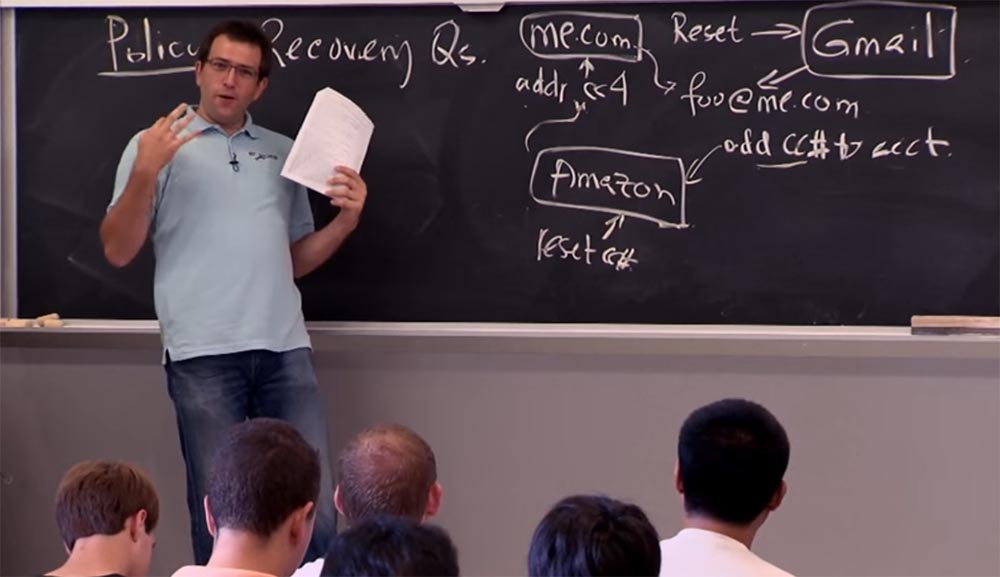 Policy Recovery Qs.
me.com
Reset
Gmail
addr cc4
foo@me.com
add cc# to acct.
Amazon
reset cc#